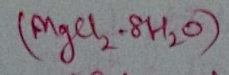 (MgCl₂·8H₂O)